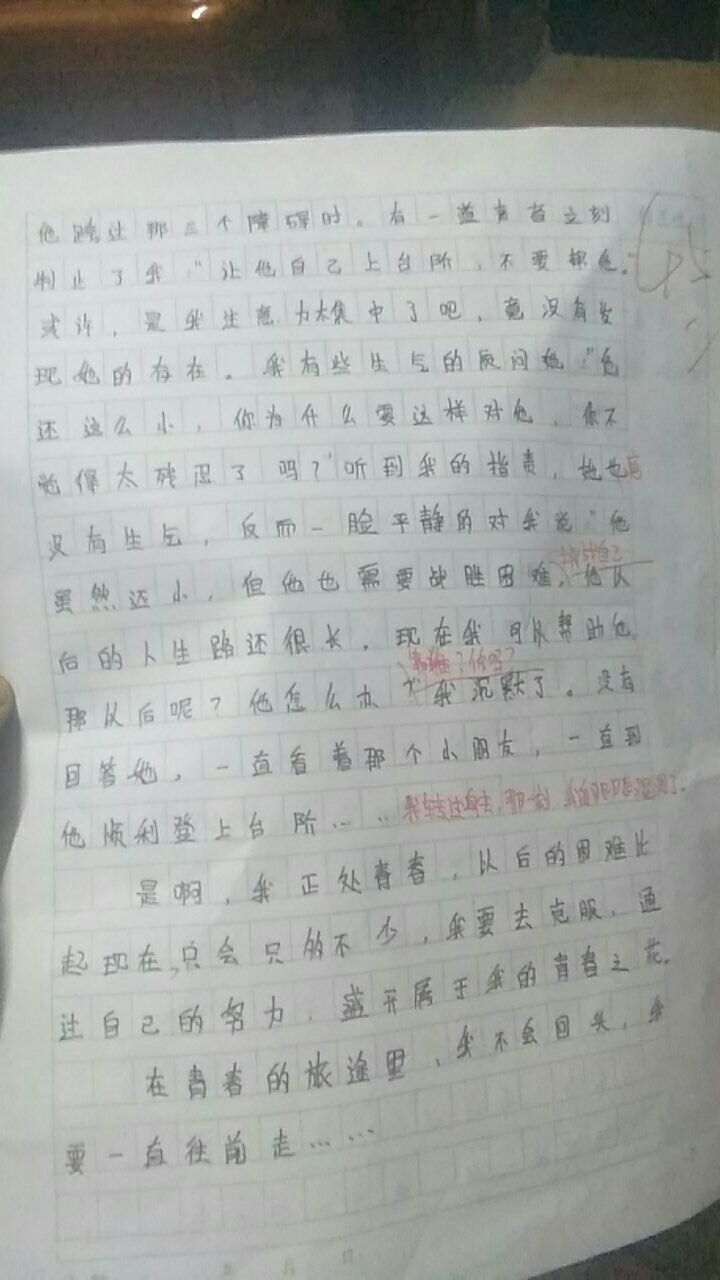 他跨过那三个障碍时。有一道青春之刻
制止了我："让他自己上台阶，不要帮他。"
或许，是我注意力太集中了吧，竟没有发
现她的存在。我有些生气的质问她："他
还这么小，你为什么要这样对他，你不
觉得太残忍了吗？"听到我的指责，她也
没有生气，反而一脸平静的对我说："他
虽然还小，但他也需要战胜困难，他以
后的人生路还很长，现在我可以帮助他，
那以后呢？他怎么办？"我沉默了。没有
回答她，一直看着那个小朋友，一直到
他顺利登上台阶……我转过身去，那一刻，我的眼眶湿润了。
是啊，我正处青春，以后的困难比
起现在，只会只多不少，我要去克服，通
过自己的努力，盛开属于我的青春之花。
在青春的旅途里，我不会回头，我
要一直往前走……